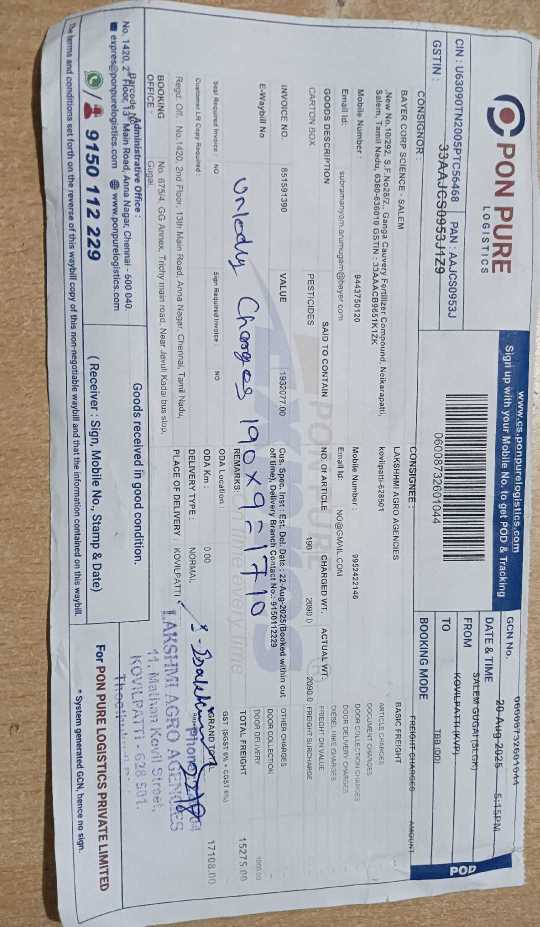 PON PURE
LOGISTICS
www.cs.ponpurelogistics.com
Sign up with your Mobile No. to get POD & Tracking
CIN : U63090TN2005PTC56468 PAN : AAJCS0953J
GSTIN : 33AAJCS0953J1Z9
06038732601044
GCN No.
DATE & TIME 20 Aug 2025 5:15PM
FROM SALEM GUGAI(SLGM)
TO KOVILPATTI (KVP)
BOOKING MODE TBB (DD)
POD
CONSIGNOR :
BAYER CORP SCIENCE - SALEM
,New No.10/292, S.F.No28/2., Ganga Cauvery Fertilizer Compound, Neikarapatti,
Salem, Tamil Nadu, 6360-636010 GSTIN : 33AAACB9651K1ZK
Mobile Number : 9443750120
Email Id: subramanyom.arumugam@bayer.com
CONSIGNEE :
LAKSHMI AGRO AGENCIES
kovilpatti-628501
Mobile Number : 9952422146
Email Id: NO@GMAIL.COM
GOODS DESCRIPTION SAID TO CONTAIN NO. OF ARTICLE CHARGED WT. ACTUAL WT.
CARTON BOX PESTICIDES 190 2090.0 2090.0
INVOICE NO. 851591390 VALUE 1932077.00
E-Waybill No
Cus. Spec. Inst : Est. Del. Date : 22-Aug-2025(Booked within cut
off time), Delivery Branch Contact No: 9150112229
REMARKS:
Unlody Charges 190 x 9 = 1710
Sepr Required Invoice : NO Sign Required Invoice : NO
Customer LR Copy Required :
ODA Location :
ODA Km : 0.00
DELIVERY TYPE : NORMAL
PLACE OF DELIVERY : KOVILPATTI
FREIGHT CHARGES AMOUNT
BASIC FREIGHT
ARTICLE CHARGES
DOCUMENT CHARGES
DOOR COLLECTION CHARGES
DOOR DELIVERY CHARGES
DIESEL HIKE CHARGES
FREIGHT ON VALUE
FREIGHT SURCHARGE
OTHER CHARGES
DOOR COLLECTION
DOOR DELIVERY 1000.00
TOTAL FREIGHT 15275.00
GST (SGST 6% + CGST 6%)
GRAND TOTAL 17108.00
Regd. Off. No.1420, 2nd Floor, 13th Main Road, Anna Nagar, Chennai, Tamil Nadu,
BOOKING OFFICE : No. 675/4, GG Annex, Trichy main road, Near Javuli Kadai bus stop,
Gugai
Administrative Office :
No. 1420, 2nd Floor, 13th Main Road, Anna Nagar, Chennai - 600 040.
expres@ponpurelogistics.com www.ponpurelogistics.com
9150 112 229
Goods received in good condition.
( Receiver : Sign, Mobile No., Stamp & Date)
LAKSHMI AGRO AGENCIES
11, Mathan Kovil Street,
KOVILPATTI - 628 501.
For PON PURE LOGISTICS PRIVATE LIMITED
The terms and conditions set forth on the reverse of this waybill copy of this non-negotiable waybill and that the information contained on this waybill.
* System generated GCN, hence no sign.